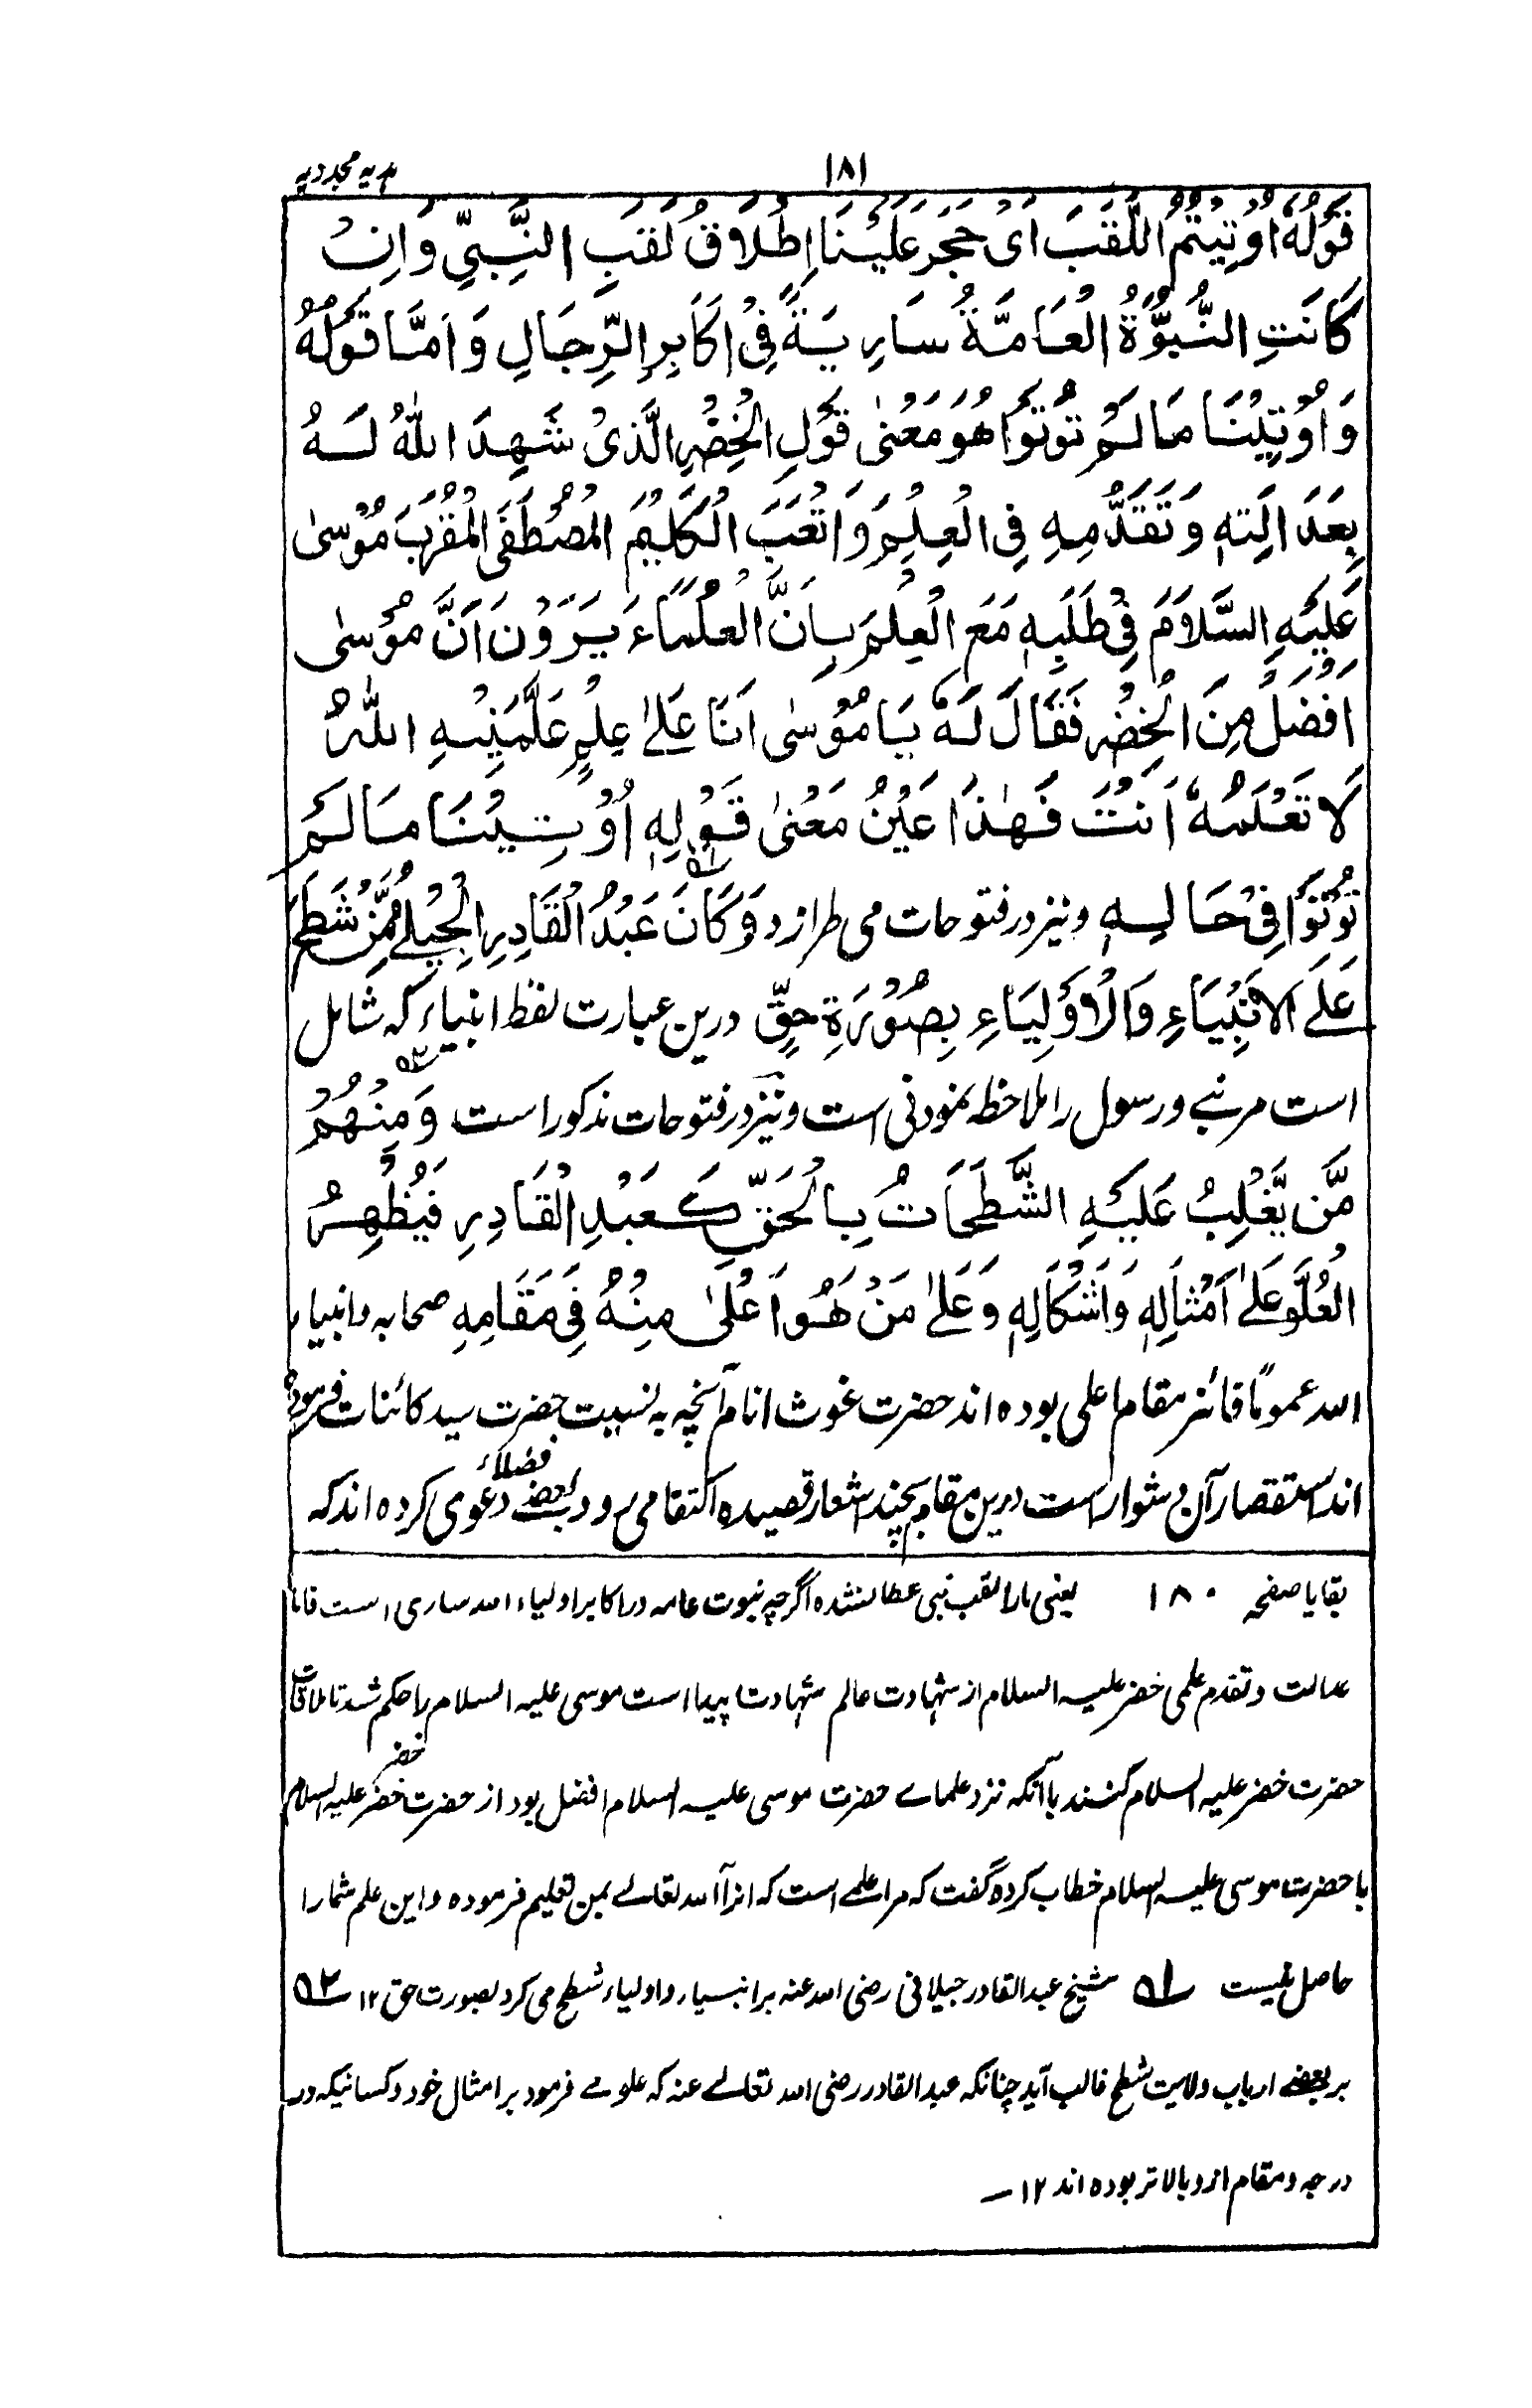 ۱۸۱
ہدیہ مجددیہ
قَوْلُهٗ اُوْتِيْتُمُ اللَّقَبَ اَىْ حَجَرَ عَلَيْنَا اِطْلَاقَ لَقَبِ النَّبِيِّ وَاِنْ
كَانَتِ النُّبُوَّةُ الْعَامَّةُ سَارِيَةً فِىْ اَكَابِرِ الرِّجَالِ وَاَمَّا قَوْلُهٗ
وَاُوْتِيْنَا مَالَمْ تُوْتَوْا هُوَ مَعْنٰى قَوْلِ الْخِضْرِ الَّذِىْ شَهِدَ اللّٰهُ لَهٗ
بِعَدَالَتِهٖ وَتَقَدُّمِهٖ فِى الْعِلْمِ وَاَتْعَبَ الْكَلِيْمَ الْمُصْطَفَى الْمُقَرَّبَ مُوْسٰى
عَلَيْهِ السَّلَامَ فِىْ طَلَبِهٖ مَعَ الْعِلْمِ بِاَنَّ الْعُلَمَاءَ يَرَوْنَ اَنَّ مُوْسٰى
اَفْضَلُ مِنَ الْخِضْرِ فَقَالَ لَهٗ يَا مُوْسٰى اَنَا عَلٰى عِلْمٍ عَلَّمَنِيْهِ اللّٰهُ
لَا تَعْلَمُهٗ اَنْتَ فَهٰذَا عَيْنُ مَعْنٰى قَوْلِهٖ اُوْتِيْنَا مَالَمْ
تُوْتَوْا فِىْ حَالِهٖ ونیز در فتوحات می طرازد وَكَانَ ۵۱ عَبْدُ الْقَادِرِ الْجِيْلِىْ مِمَّنْ شَطَحَ
عَلَى الْاَنْبِيَاءِ وَالْاَوْلِيَاءِ بِصُوْرَةِ حَقٍّ درین عبارت لفظ انبیاء کہ شامل
است مر نبی و رسول را ملاحظہ نمودنی است ونیز در فتوحات مذکور است ۵۲ وَمِنْهُمْ
مَّنْ يَّغْلِبُ عَلَيْهِ الشَّطَحَاتُ بِالْحَقِّ كَعَبْدِ الْقَادِرِ فَيُظْهِرُ
الْعُلُوَّ عَلٰى اَمْثَالِهٖ وَاَشْكَالِهٖ وَعَلٰى مَنْ هُوَ اَعْلٰى مِنْهُ فِىْ مَقَامِهٖ صحابہ وانبیاء
اللہ عموماً فائز مقام اعلی بوده اند حضرت غوث انام آنچہ بہ نسبت حضرت سید کائنات فرموده
اند استقصار آن دشوار است درین مقام بچند اشعار قصیده اکتفا می رود بعضے فضلاء دعوی کرده اند کہ
بقایا صفحہ ۱۸۰ یعنی مارا لقب نبی عطا نشده اگرچہ نبوت عامہ در اکابر اولیاء اللہ ساری است فاما
عدالت وتقدم علمی خضر علیہ السلام از شہادت عالم شہادت پیدا است موسی علیہ السلام را حکم شد تا ملاقات
حضرت خضر علیہ السلام کنند با آنکہ نزد علماے حضرت موسی علیہ السلام افضل بود از حضرت خضر علیہ السلام خضر
با حضرت موسی علیہ السلام خطاب کرده گفت کہ مرا علمے است کہ انرا اللہ تعالے بمن تعلیم فرموده واین علم شمارا
حاصل نیست ۵۱ شیخ عبدالقادر جیلانی رضی اللہ عنہ بر انبیاء و اولیاء شطح می کرد بصورت حق ۱۲ ۵۲
بر بعضے ارباب ولایت شطح غالب آید چنانکہ عبدالقادر رضی اللہ تعالے عنہ کہ علو مے فرمود بر امثال خود و کسانیکہ در
درجہ و مقام ازو بالاتر بوده اند ۱۲ —